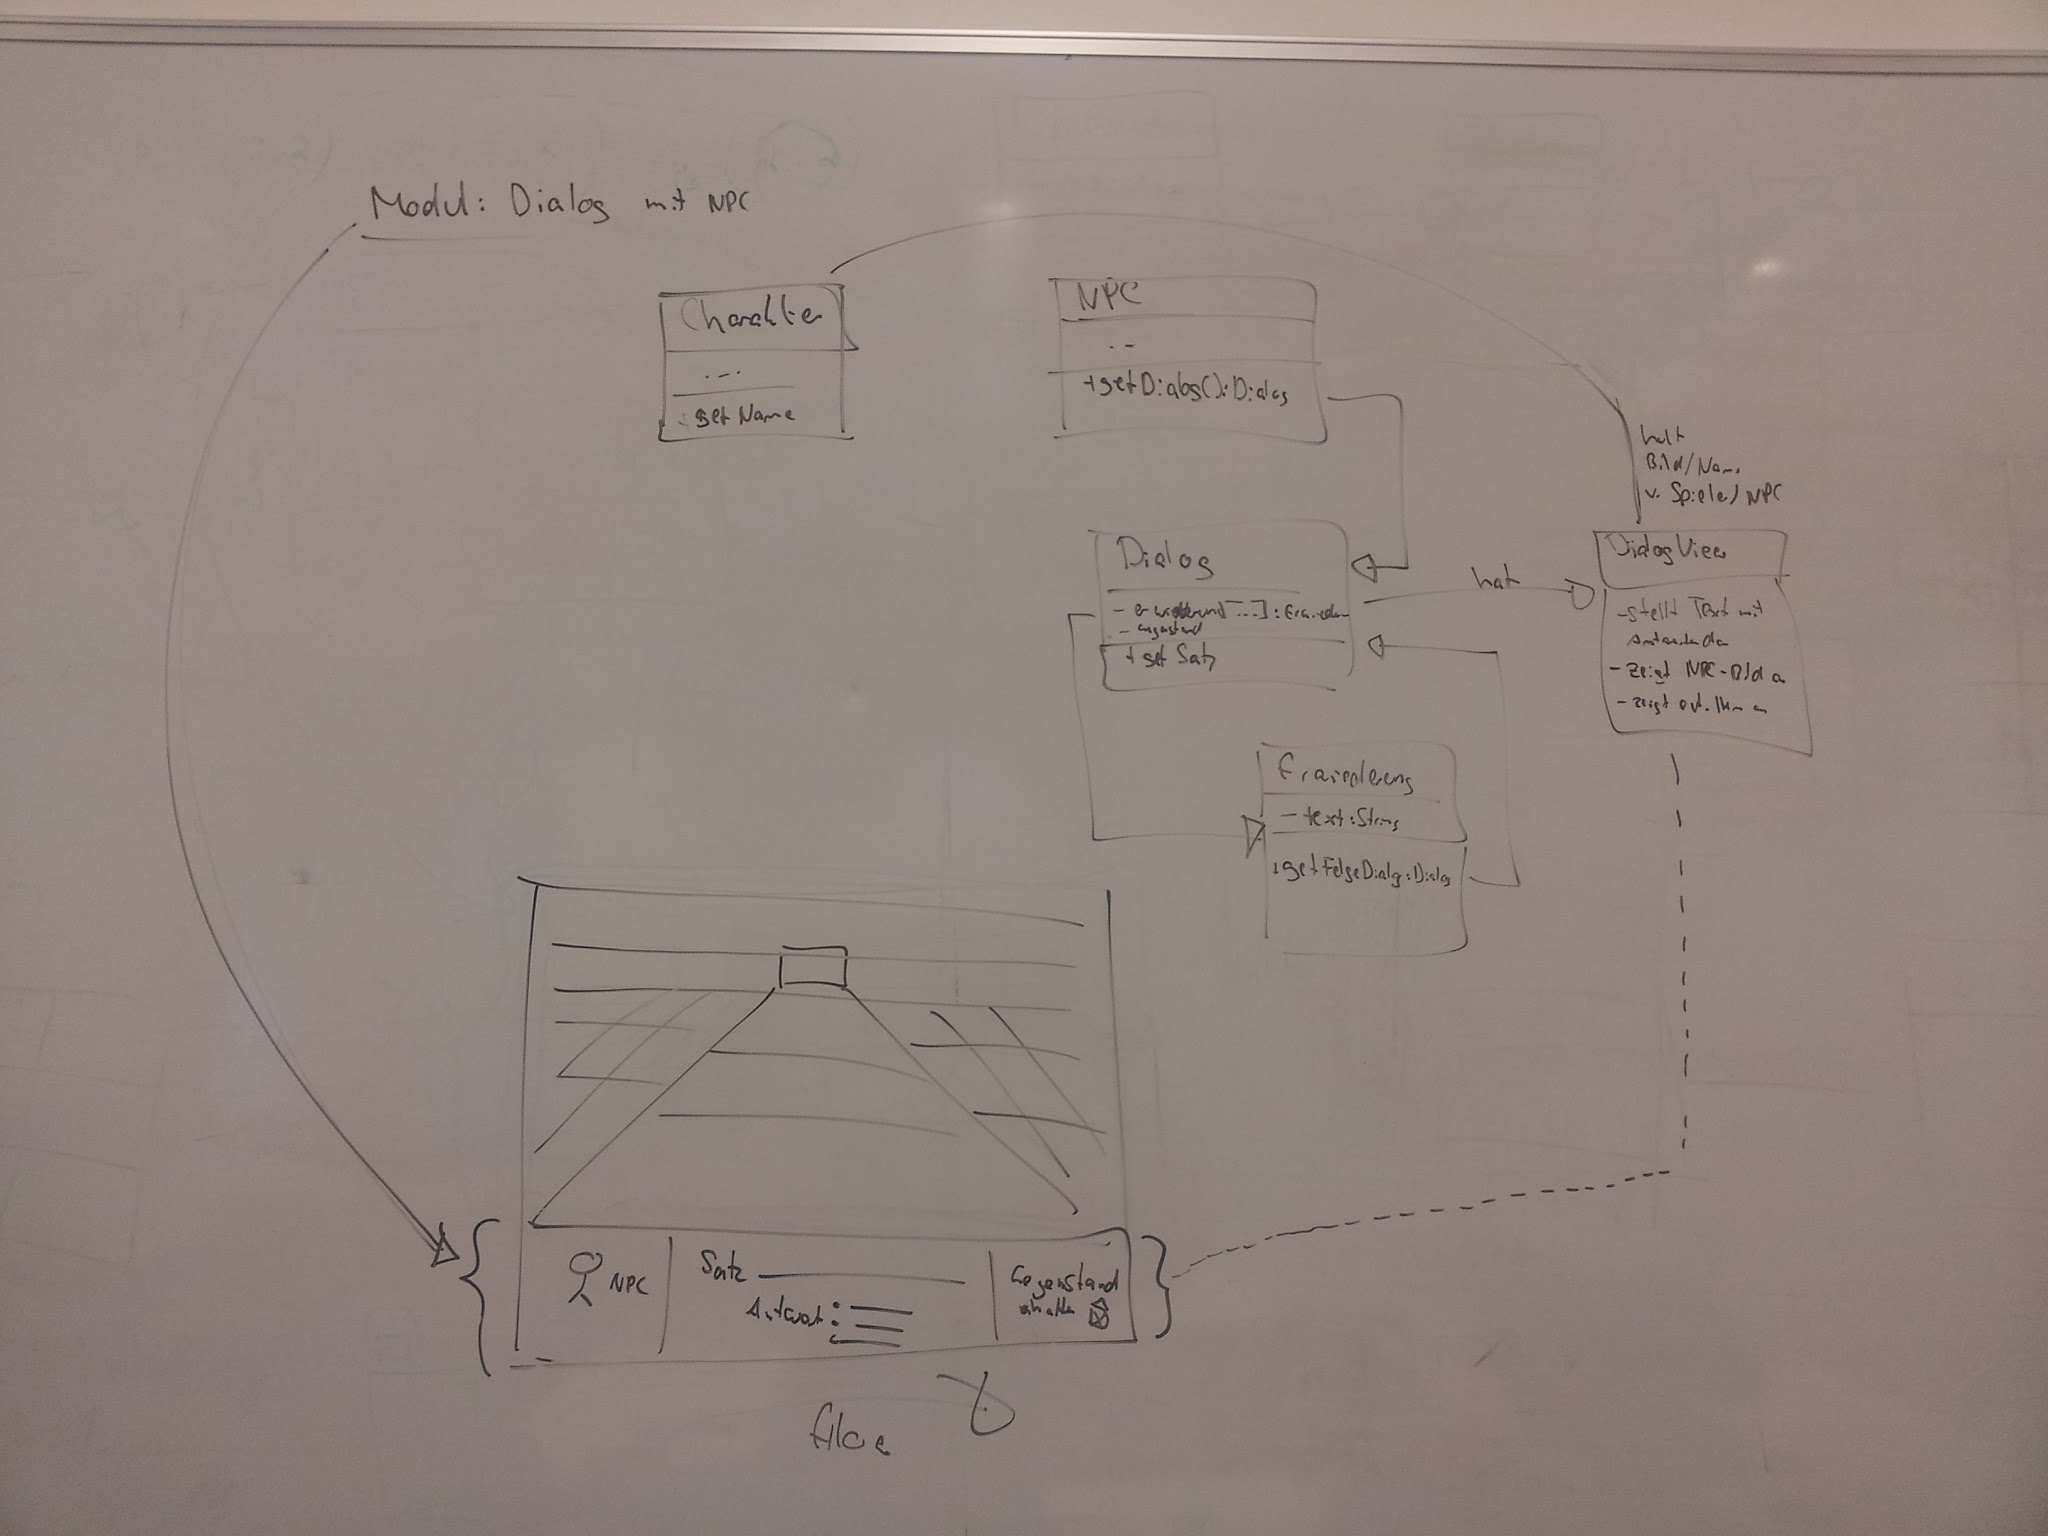 Modul: Dialog mit NPC
Charakter
...
getName
NPC
..
+getDialog():Dialog
holt
Bild/Name
v. Spieler/NPC
Dialog
- gegenstand
+ getSatz
hat
DialogView
- stellt Text mit
- zeigt NPC-Bild an
- zeigt evt. Item an
Erwiederung
- text:String
+getFolgeDialog:Dialog
NPC
Satz
Antwort:
Gegenstand
erhalten